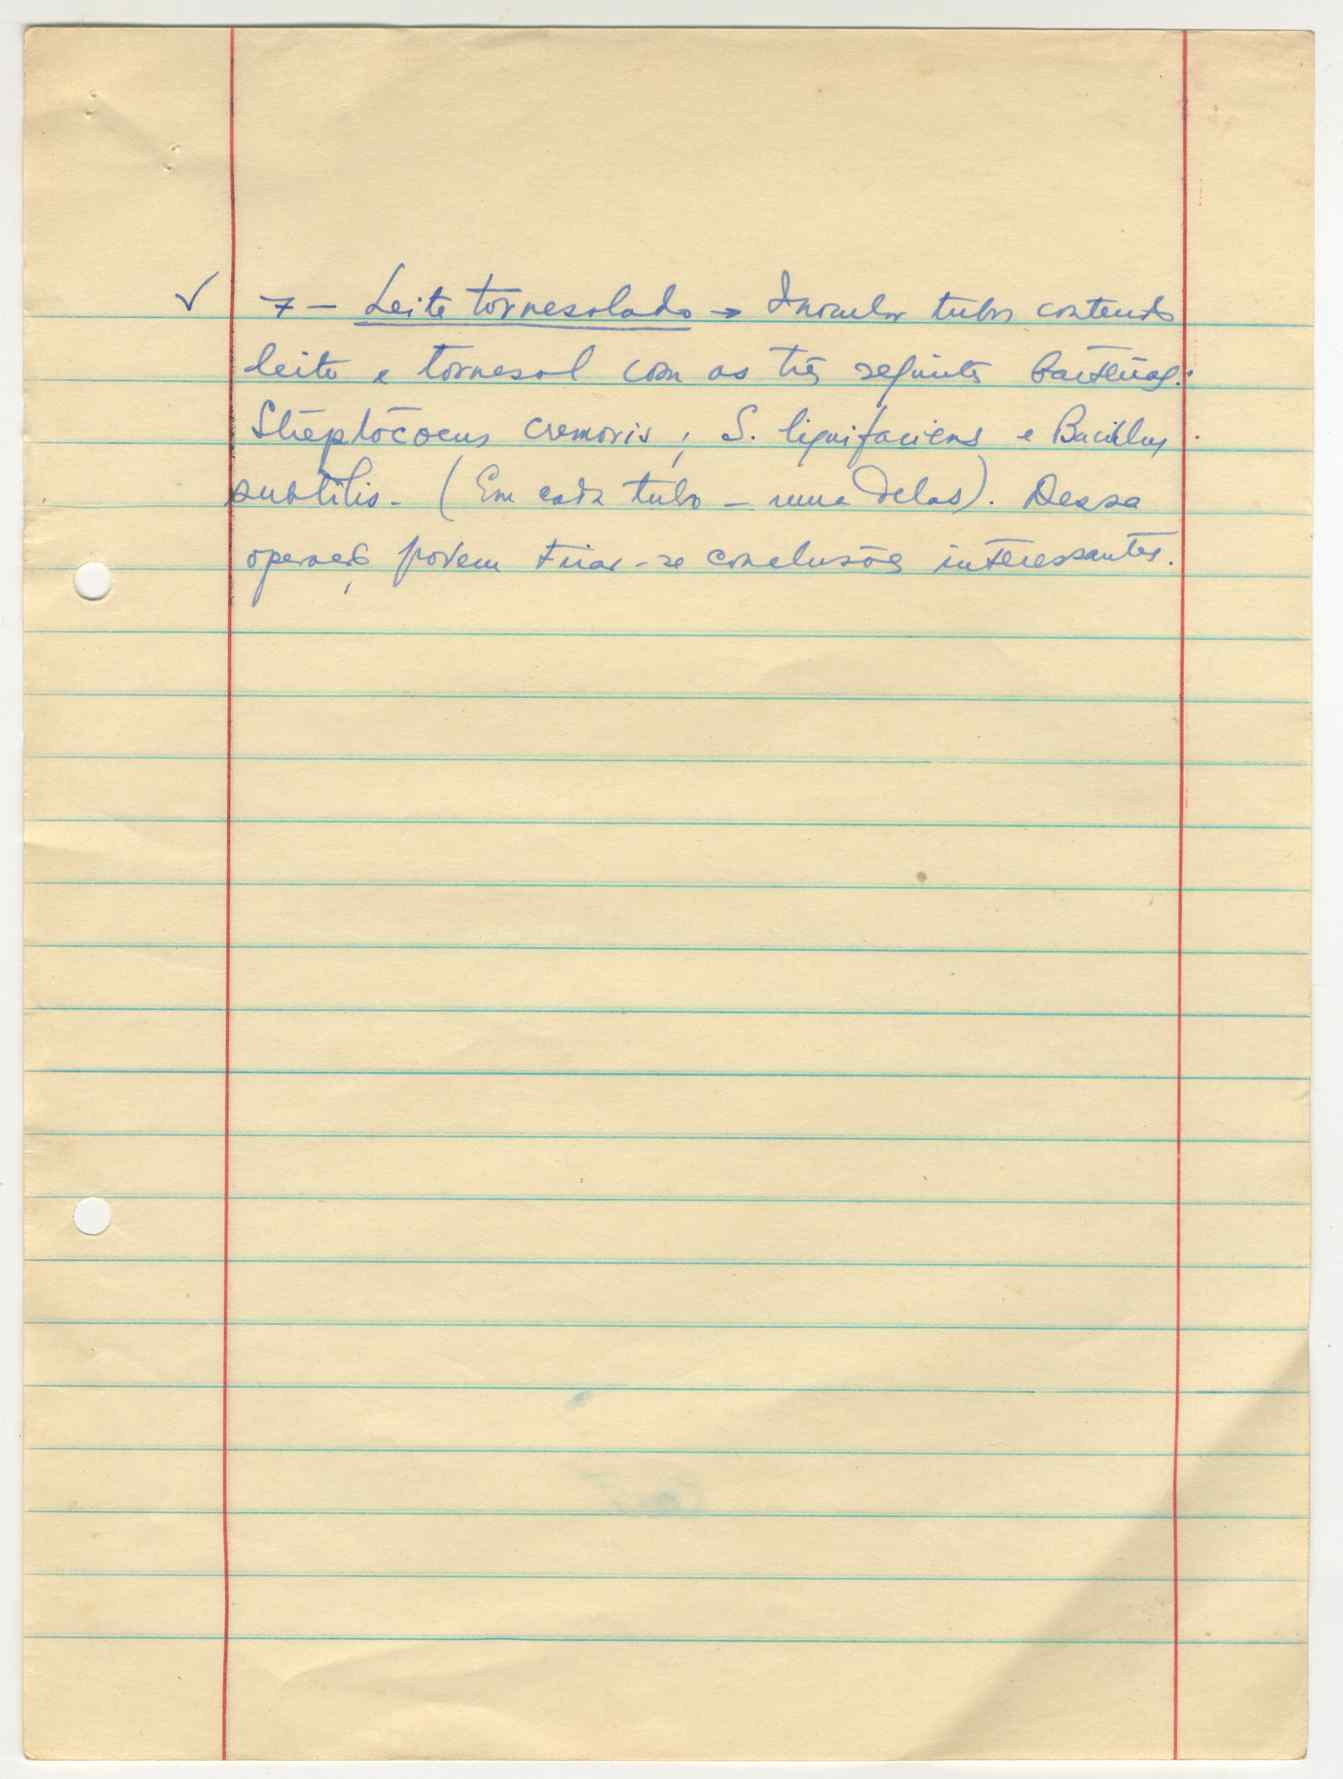 ✓ 7 – Leite tornesolado → Inocular tubos contendo
leite e tornesol com as três seguintes bactérias:
Streptococus cremoris, S. liquifaciens e Bacillus
subtilis. (Em cada tubo – uma delas). Dessa
operação podem tirar-se conclusões interessantes.